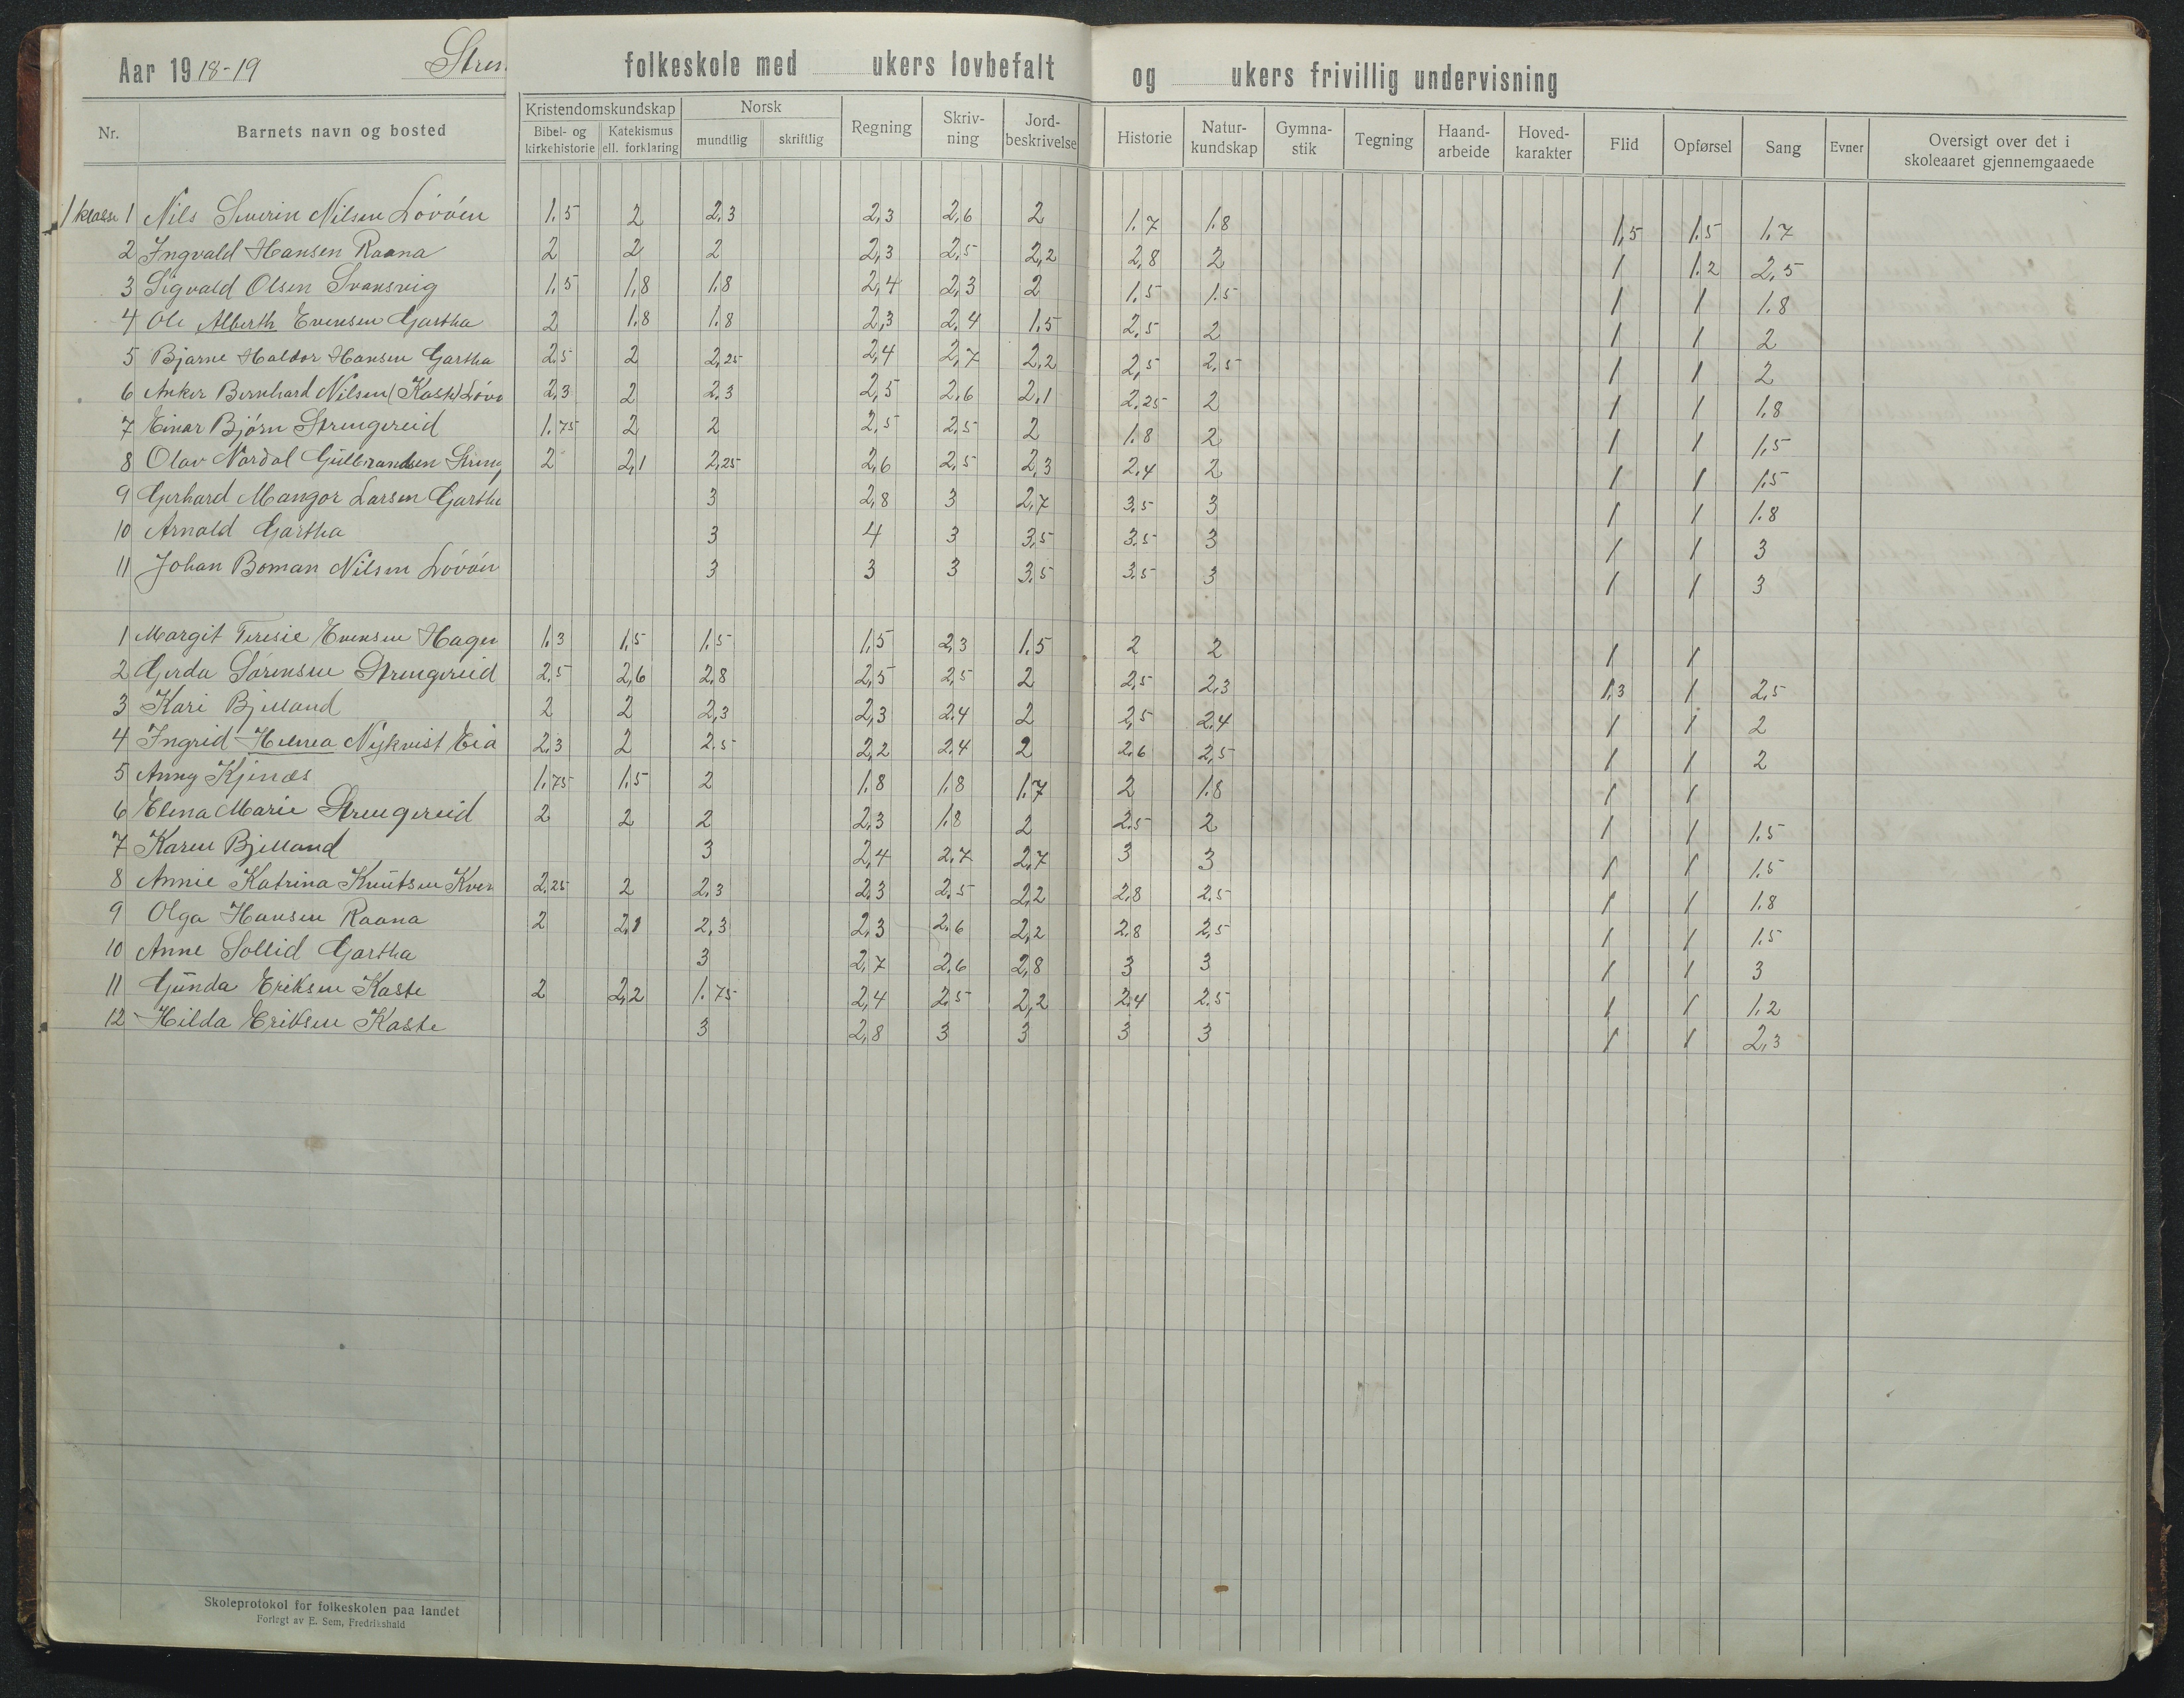 Aar 1918-19 Stren folkeskole med ukers lovbefalt og ukers frivillig undervisning
Nr. Barnets navn og bosted Kristendomskundskap Bibel- og kirkehistorie Katekismus ell. forklaring Norsk mundtlig skriftlig Regning Skriv-ning Jord-beskrivelse Historie Natur-kundskap Gymna-stik Tegning Haand-arbeide Hoved-karakter Flid Opførsel Sang Evner Oversigt over det i skoleaaret gjennemgaaede
1 klasse 1 Nils Severin Nilsen Lövöen 1.5 2 2,3 2,3 2,6 2 1.7 1.8 1,5 1.5 1.7
2 Ingvald Hansen Raana 2 2 2 2,3 2,5 2,2 2,8 2 1 1.2 2,5
3 Sigvald Olsen Svansvig 1.5 1,8 1.8 2,4 2,3 2 1.5 1.5 1 1 1.8
4 Ole Alberth Evensen Gartha 2 1.8 1.8 2,3 2,4 1.5 2,5 2 1 1 2
5 Bjarne Haldor Hansen Gartha 2.5 2 2,25 2,4 2,7 2,2 2,5 2,5 1 1 2
6 Anker Bernhard Nilsen (Kaste) Löv 2,3 2 2.3 2,5 2,6 2,1 2,25 2 1 1 1.8
7 Einar Björn Strengereid 1.75 2 2 2,5 2,5 2 1.8 2 1 1 1,5
8 Olav Nordal Gulbrandsen Streng 2 2,1 2,25 2,6 2,5 2,3 2,4 2 1 1 1.5
9 Gerhard Mangor Larsen Gartha 3 2,8 3 2,7 3,5 3 1 1 1.8
10 Arnold Gartha 3 4 3 3,5 3.5 3 1 1 3
11 Johan Boman Nilsen Lövöen 3 3 3 3.5 3.5 3 1 1 3
1 Margit Teresie Evensen Hagen 1.3 1,5 1.5 1,5 2,3 1.5 2 2 1 1
2 Gerda Sörensen Strengereid 2.5 2,6 2,8 2,5 2,5 2 2,5 2,3 1.3 1 2,5
3 Kari Bjelland 2 2 2,3 2,3 2.4 2 2,5 2.4 1 1 2
4 Ingrid Helena Nykvist Eia 2.3 2 2.5 2,2 2.4 2 2.6 2,5 1 1 2
5 Anny Kjenæs 1.75 1.5 2 1.8 1.8 1.7 2 1.8 1 1
6 Elena Marie Strengereid 2 2 2 2,3 1.8 2 2.5 2 1 1 1.5
7 Karen Bjelland 3 2,4 2.7 2,7 3 3 1 1 1.5
8 Annie Katrina Knutsen Kver 2,25 2 2.3 2.3 2.5 2,2 2,8 2.5 1 1 1.8
9 Olga Hansen Raana 2 2,1 2,3 2,3 2.6 2,2 2.8 2,5 1 1 1.5
10 Anne Sollid Gartha 3 2,7 2.6 2,8 3 3 1 1 3
11 Gunda Eriksen Kaste 2 2,2 1.75 2,4 2.5 2,2 2.4 2.5 1 1 1.2
12 Hilda Eriksen Kaste 3 2,8 3 3 3 3 1 1 2,3
Skoleprotokol for folkeskolen paa landet
Forlegt av E. Sem, Fredrikshald